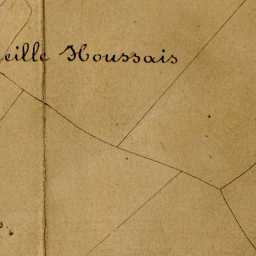 eille Houssais